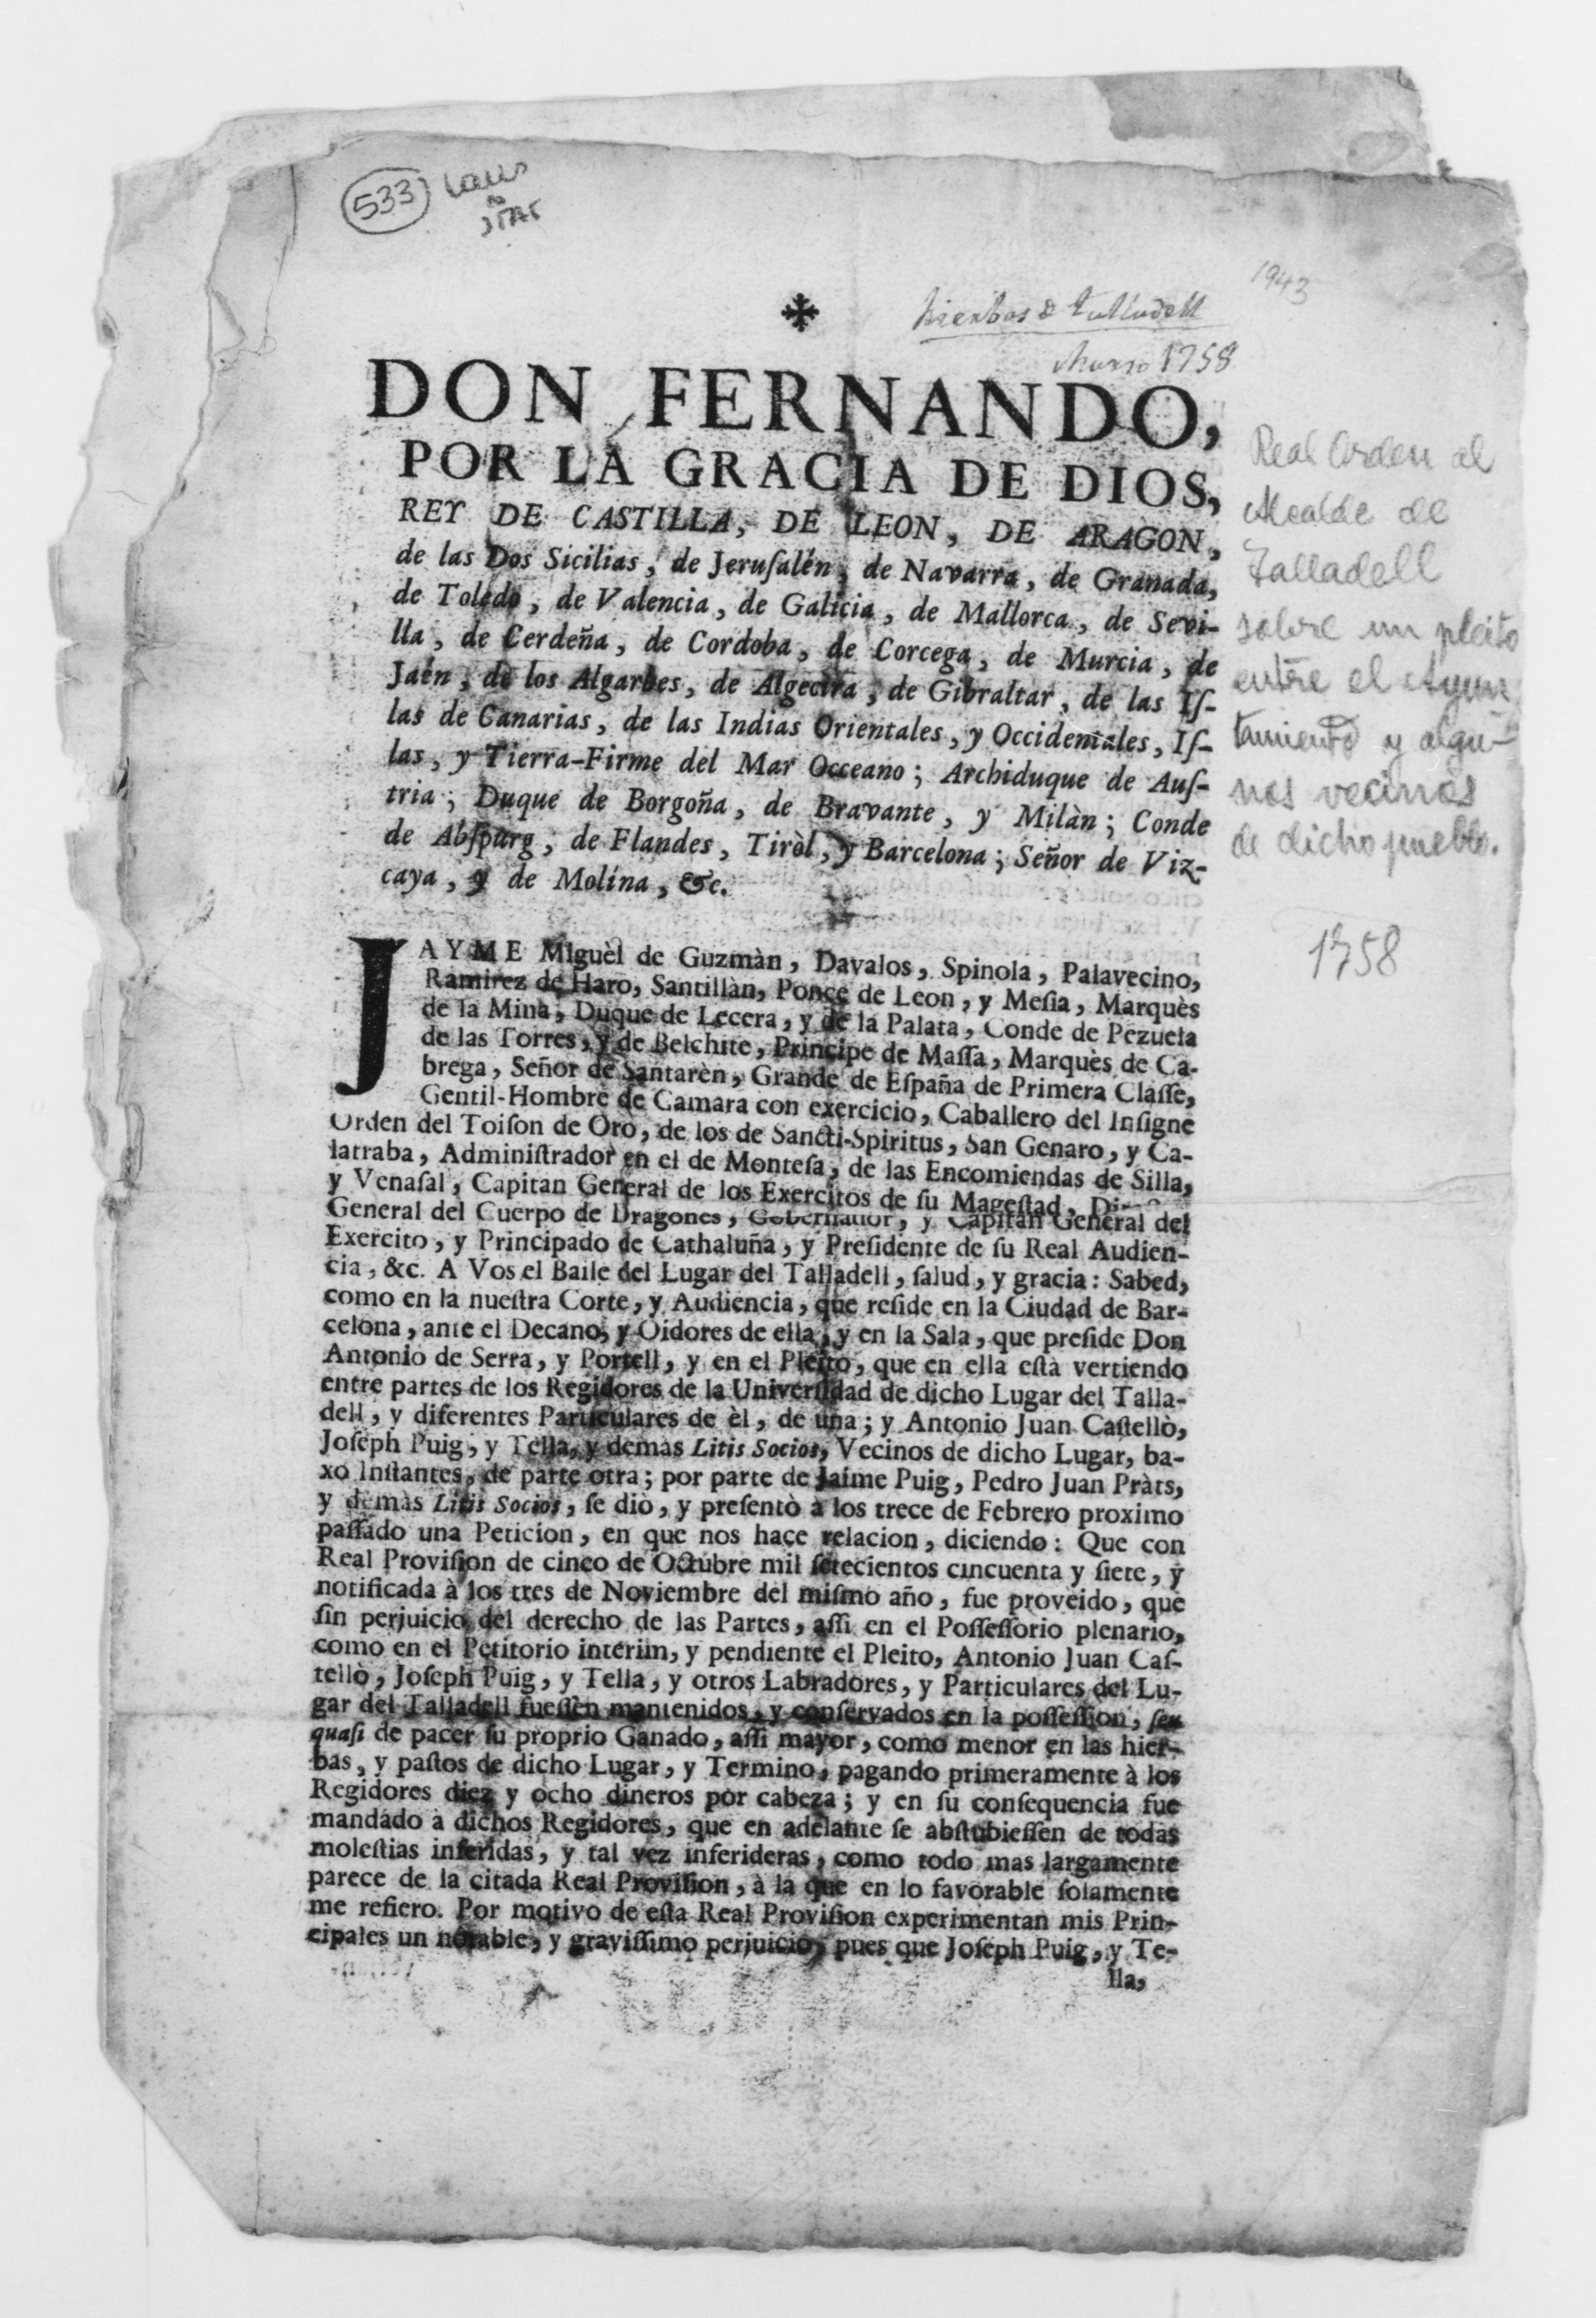 533
1943
Hierbas d Talladell
Marzo 1758
DON FERNANDO,
POR LA GRACIA DE DIOS,
REY DE CASTILLA, DE LEON, DE ARAGON,
de las Dos Sicilias, de Jeruſalén, de Navarra, de Granada,
de Toledo, de Valencia, de Galicia, de Mallorca, de Sevi-
lla, de Cerdeña, de Cordoba, de Corcega, de Murcia, de
Jaén, de los Algarbes, de Algecira, de Gibraltar, de las Iſ-
las de Canarias, de las Indias Orientales, y Occidentales, Iſ-
las, y Tierra-Firme del Mar Occeano; Archiduque de Auſ-
tria; Duque de Borgoña, de Bravante, y Milàn; Conde
de Abſpurg, de Flandes, Tiròl, y Barcelona; Señor de Viz-
caya, y de Molina, &c.
Real Orden al
Alcalde de
Talladell
sobre un pleito
entre el Ayun
tamiento y algu-
nos vecinos
de dicho pueblo.
1758
JAYME Miguèl de Guzmàn, Davalos, Spinola, Palavecino,
Ramirez de Haro, Santillàn, Ponce de Leon, y Meſia, Marquès
de la Mina, Duque de Lecera, y de la Palata, Conde de Pezuela
de las Torres, y de Belchite, Principe de Maſſa, Marquès de Ca-
brega, Señor de Santarèn, Grande de Eſpaña de Primera Claſſe,
Gentil-Hombre de Camara con exercicio, Caballero del Inſigne
Orden del Toiſon de Oro, de los de Sancti-Spiritus, San Genaro, y Ca-
latraba, Adminiſtrador en el de Monteſa, de las Encomiendas de Silla,
y Venaſal, Capitan General de los Exercitos de ſu Mageſtad,
General del Cuerpo de Dragones, Gobernador, y Capitan General del
Exercito, y Principado de Cathaluña, y Preſidente de ſu Real Audien-
cia, &c. A Vos el Baile del Lugar del Talladell, ſalud, y gracia: Sabed,
como en la nueſtra Corte, y Audiencia, que reſide en la Ciudad de Bar-
celona, ante el Decano, y Oidores de ella, y en la Sala, que preſide Don
Antonio de Serra, y Portell, y en el Pleito, que en ella eſtà vertiendo
entre partes de los Regidores de la Univerſidad de dicho Lugar del Talla-
dell, y diferentes Particulares de èl, de una; y Antonio Juan Caſtellò,
Joſeph Puig, y Tella, y demàs Litis Socios, Vecinos de dicho Lugar, ba-
xo Inſtantes, de parte otra; por parte de Jaime Puig, Pedro Juan Pràts,
y demàs Litis Socios, ſe diò, y preſentò à los trece de Febrero proximo
paſſado una Peticion, en que nos hace relacion, diciendo: Que con
Real Proviſion de cinco de Octubre mil ſetecientos cincuenta y ſiete, y
notificada à los tres de Noviembre del miſmo año, fue proveido, que
ſin perjuicio del derecho de las Partes, aſſi en el Poſſeſſorio plenario,
como en el Petitorio interim, y pendiente el Pleito, Antonio Juan Caſ-
tellò, Joſeph Puig, y Tella, y otros Labradores, y Particulares del Lu-
gar del Talladell fueſſen mantenidos, y conſervados en la poſſeſſion, ſeu
quaſi de pacer ſu proprio Ganado, aſſi mayor, como menor en las hier-
bas, y paſtos de dicho Lugar, y Termino, pagando primeramente à los
Regidores diez y ocho dineros por cabeza; y en ſu conſequencia fue
mandado à dichos Regidores, que en adelante ſe abſtubieſſen de todas
moleſtias inferidas, y tal vez inferideras, como todo mas largamente
parece de la citada Real Proviſion, à la que en lo favorable ſolamente
me refiero. Por motivo de eſta Real Proviſion experimentan mis Prin-
cipales un notable, y graviſſimo perjuicio, pues que Joſeph Puig, y Te-
lla,